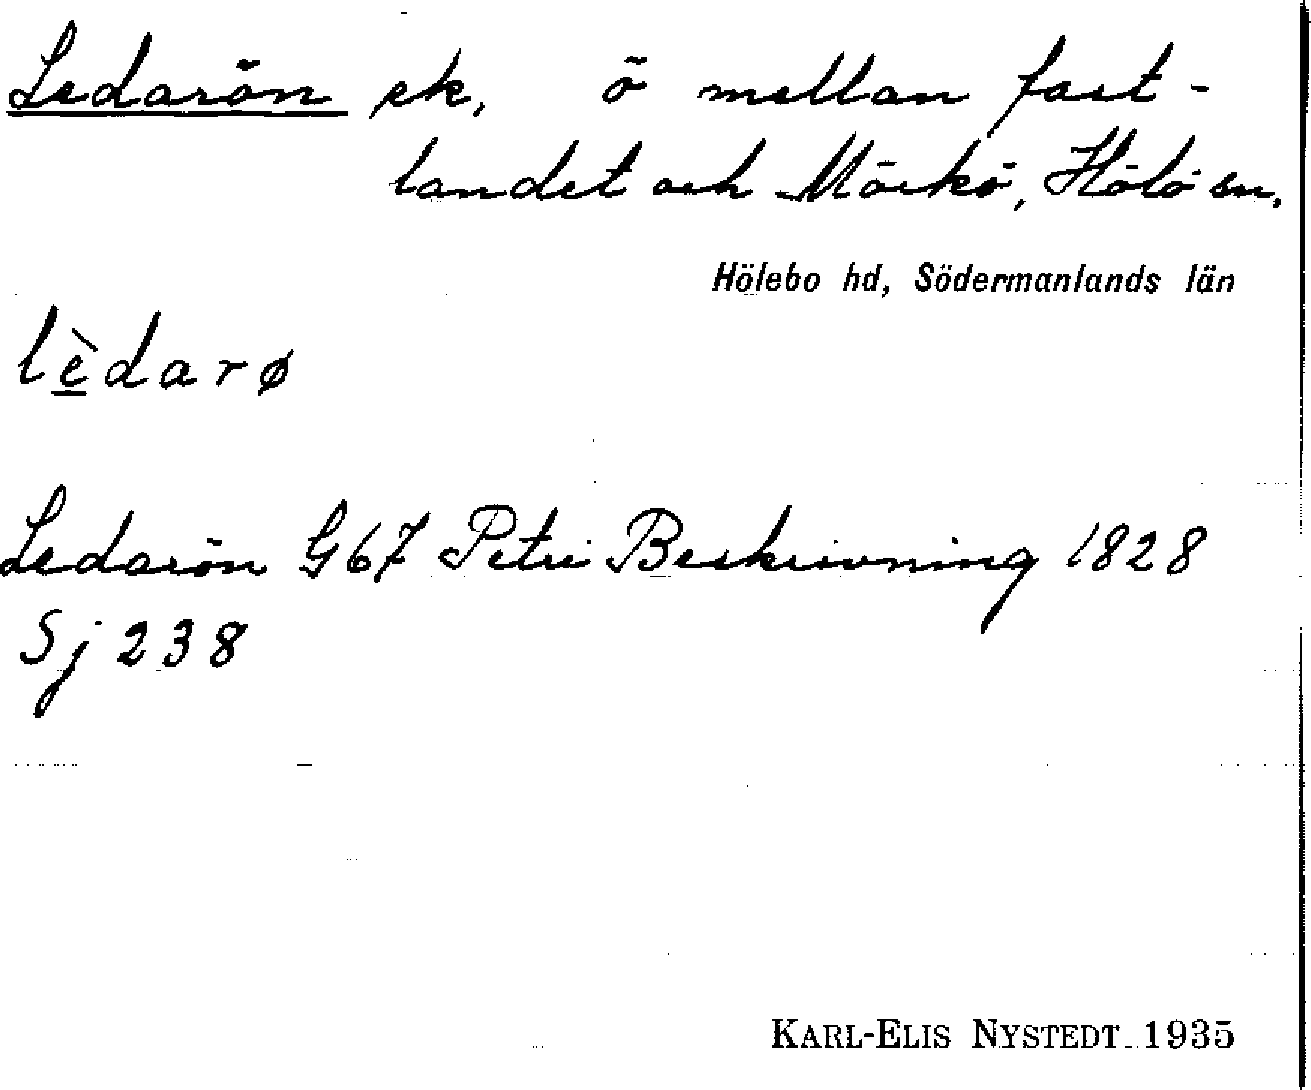 Ledarön ek, ö mellan fast-
landet och Mörkö, Hölö sn.
Hölebo hd, Södermanlands län
lèdarø
Ledarön G67 Petri Beskrivning 1828
Sj 238
KARL-ELIS NYSTEDT 1935